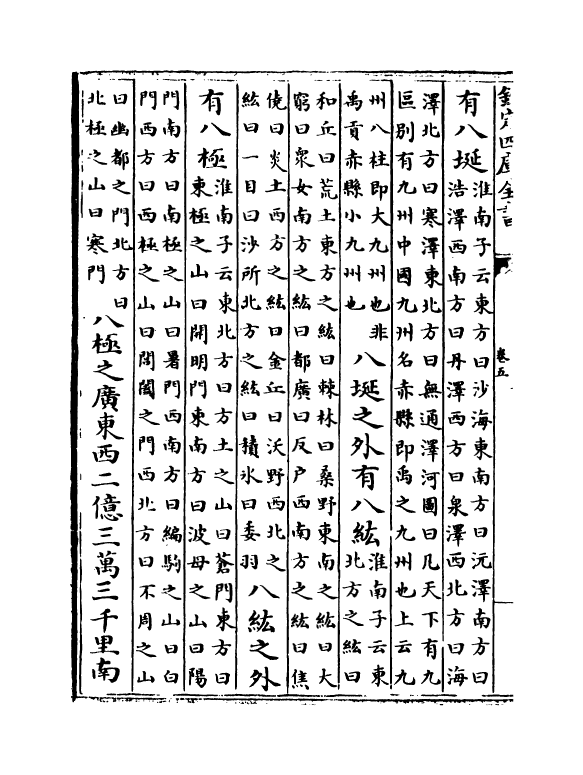 欽定四庫全書
卷五
有八埏
淮南子云東方曰沙海東南方曰沅澤南方曰
浩澤西南方曰丹澤西方曰泉澤西北方曰海
澤北方曰寒澤東北方曰無通澤河圖曰凡天下有九
區别有九州中國九州名赤縣即禹之九州也上云九
州八柱即大九州也非
禹貢赤縣小九州也
八埏之外有八紘
淮南子云東
北方之紘曰
和丘曰荒土東方之紘曰棘林曰桑野東南之紘曰大
窮曰衆女南方之紘曰都廣曰反户西南方之紘曰焦
僥曰炎土西方之紘曰金丘曰沃野西北之
紘曰一目曰沙所北方之紘曰積氷曰委羽
八紘之外
有八極
淮南子云東北方曰方土之山曰蒼門東方曰
東極之山曰開明門東南方曰波母之山曰陽
門南方曰南極之山曰暑門西南方曰編駒之山曰白
門西方曰西極之山曰閶闔之門西北方曰不周之山
曰幽都之門北方曰
北極之山曰寒門
八極之廣東西二億三萬三千里南